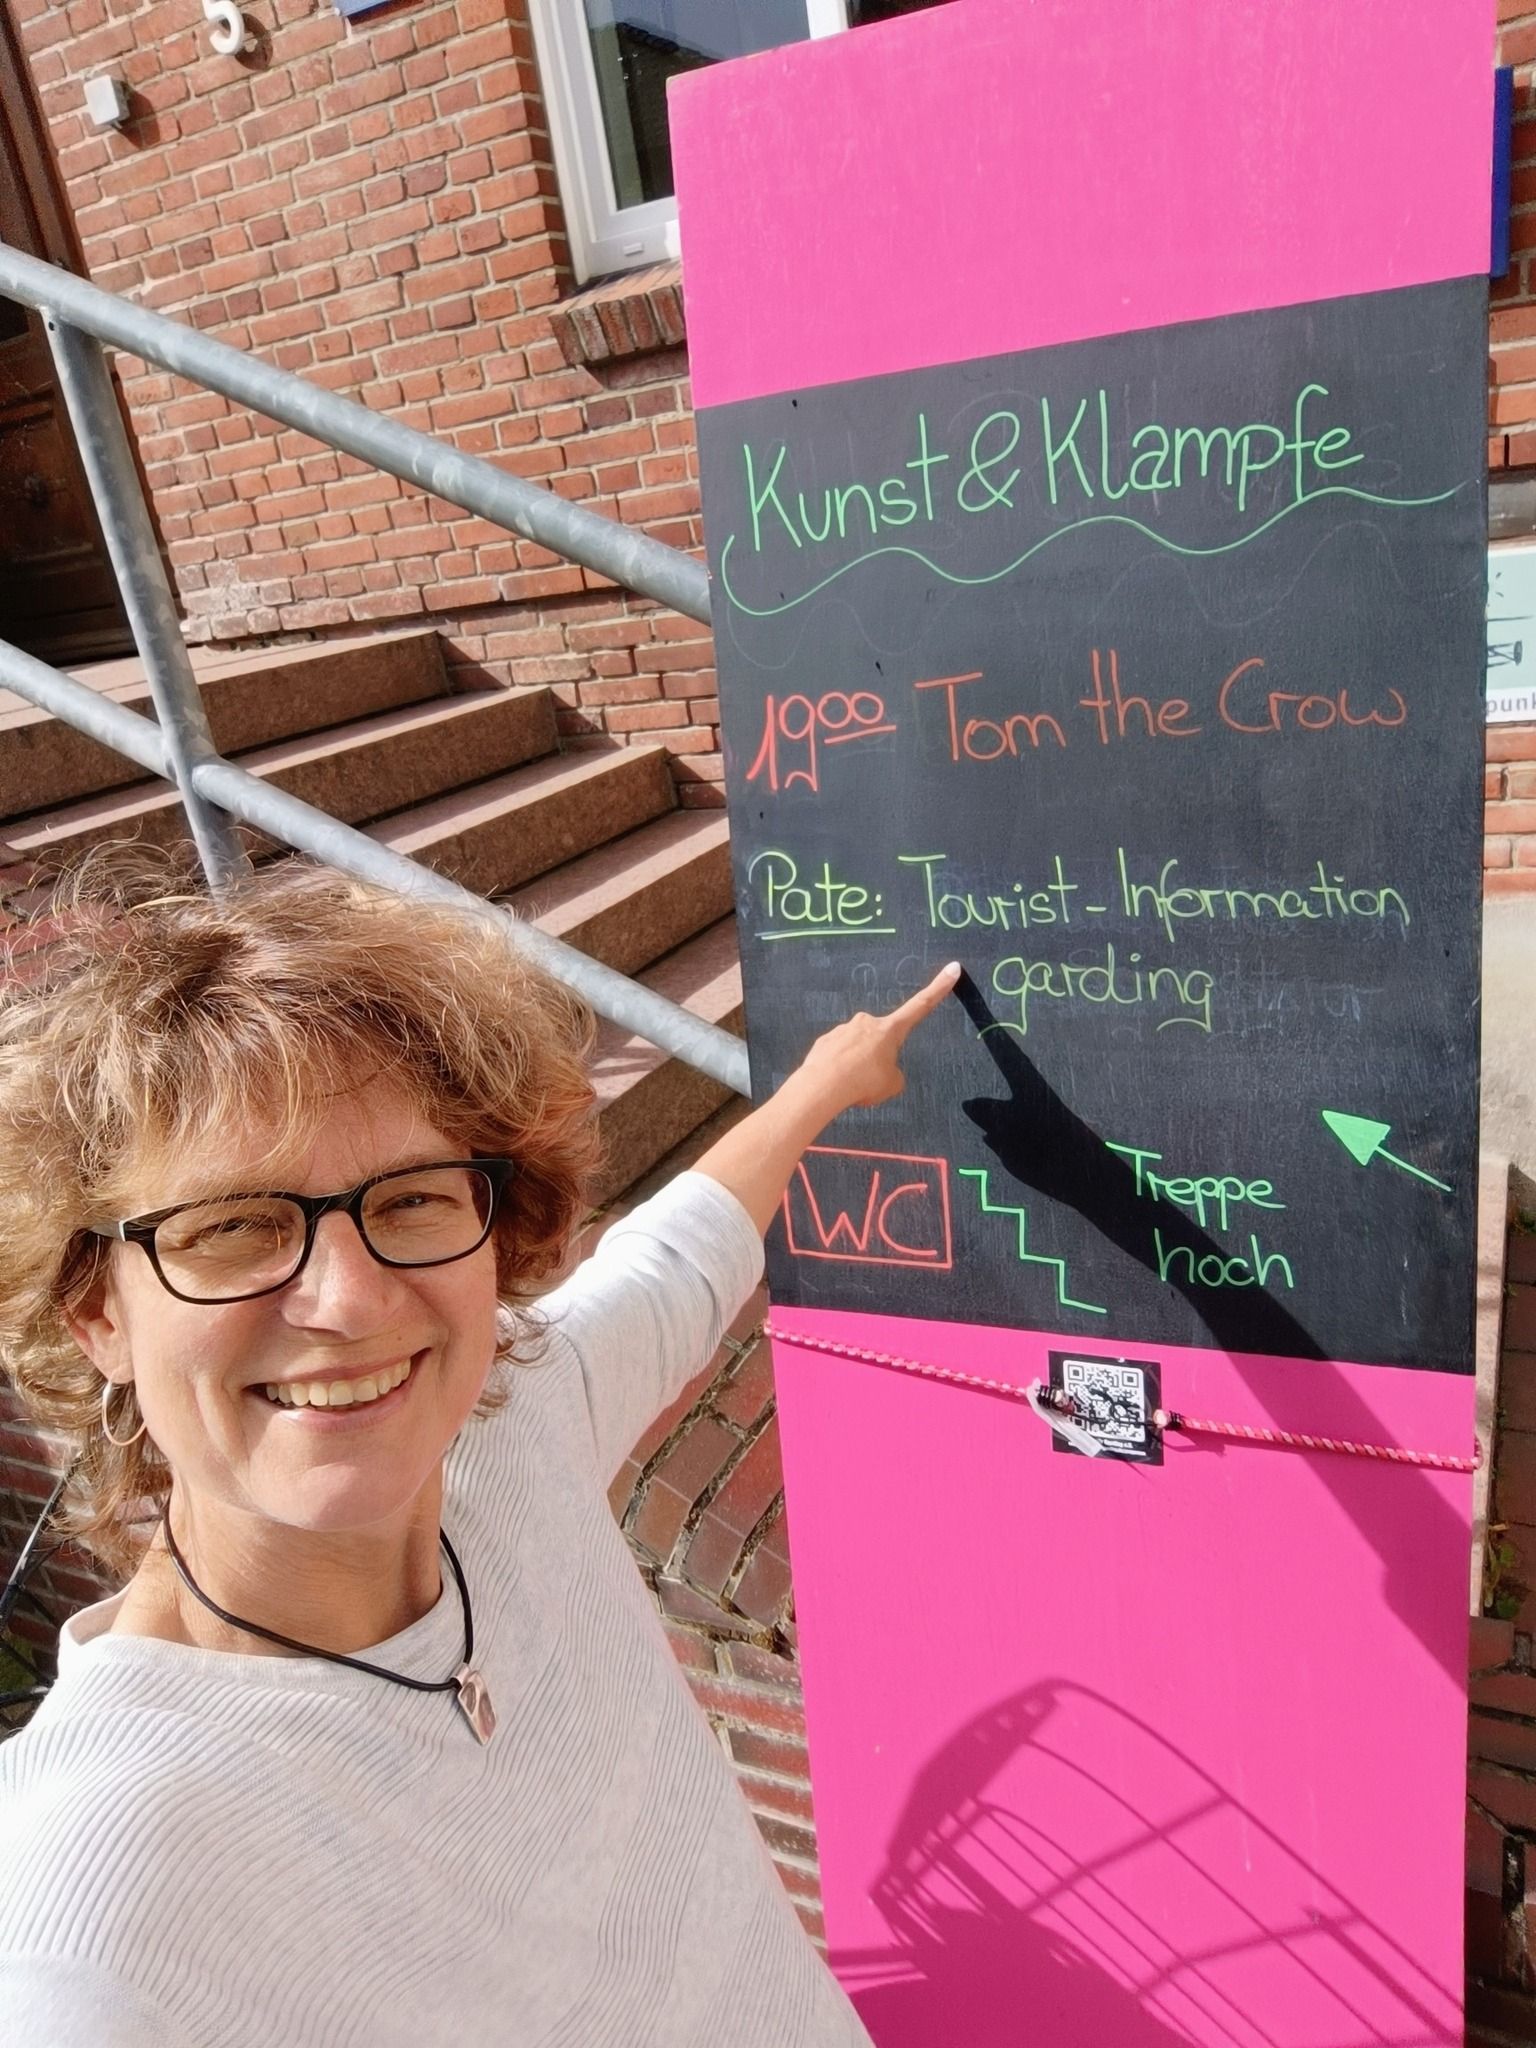 5
Kunst & Klampfe
19⁰⁰ Tom the Crow
Pate: Tourist-Information
garding
WC
Treppe
hoch
punk